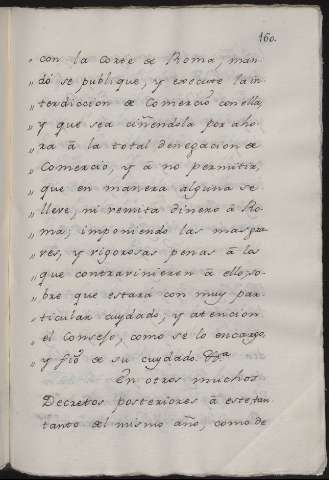 160.
" con la Corte de Roma, man-
" dó se publique, y execute la in-
" terdiccion de Comercio con ella,
" y que sea ciñendola por aho-
" ra á la total denegacion de
" Comercio, y á no permitir,
" que en manera alguna se
" lleve, ni remita dinero á Ro-
" ma; imponiendo las mas gra-
" ves, y rigorosas penas á los
" que contravinieren á ello, so-
" bre que estará con muy par-
" ticular cuydado, y atencion
" el Consejo, como se lo encargo,
" y fio de su cuydado. &.a
En otros muchos
Decretos posteriores á este, tan-
tanto del mismo año, como de